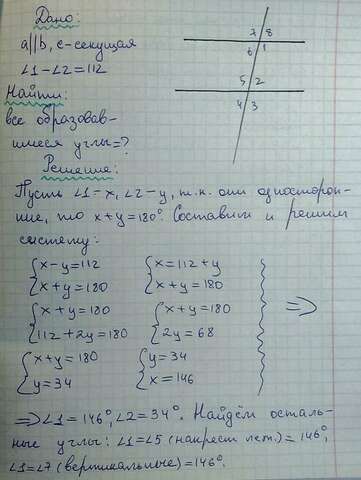 Дано:
a||b, c-секущая
∠1-∠2=112
Найти:
все образовав-
шиеся углы=?
7 8
6 1
5 2
4 3
Решение:
Пусть ∠1=x, ∠2-y, т.к. они односторон-
ние, то x+y=180°. Составим и решим
систему:
{x-y=112 {x=112+y
{x+y=180 {x+y=180
{x+y=180 {x+y=180
{112+2y=180 {2y=68
=>
{x+y=180 {y=34
{y=34 {x=146
=>∠1=146°, ∠2=34°. Найдём осталь-
ные углы: ∠1=∠5 (накрест леж.)=146°,
∠1=∠7 (вертикальные)=146°.